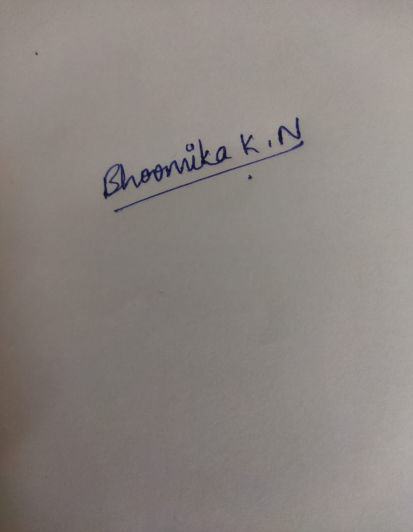 Bhoomika K.N